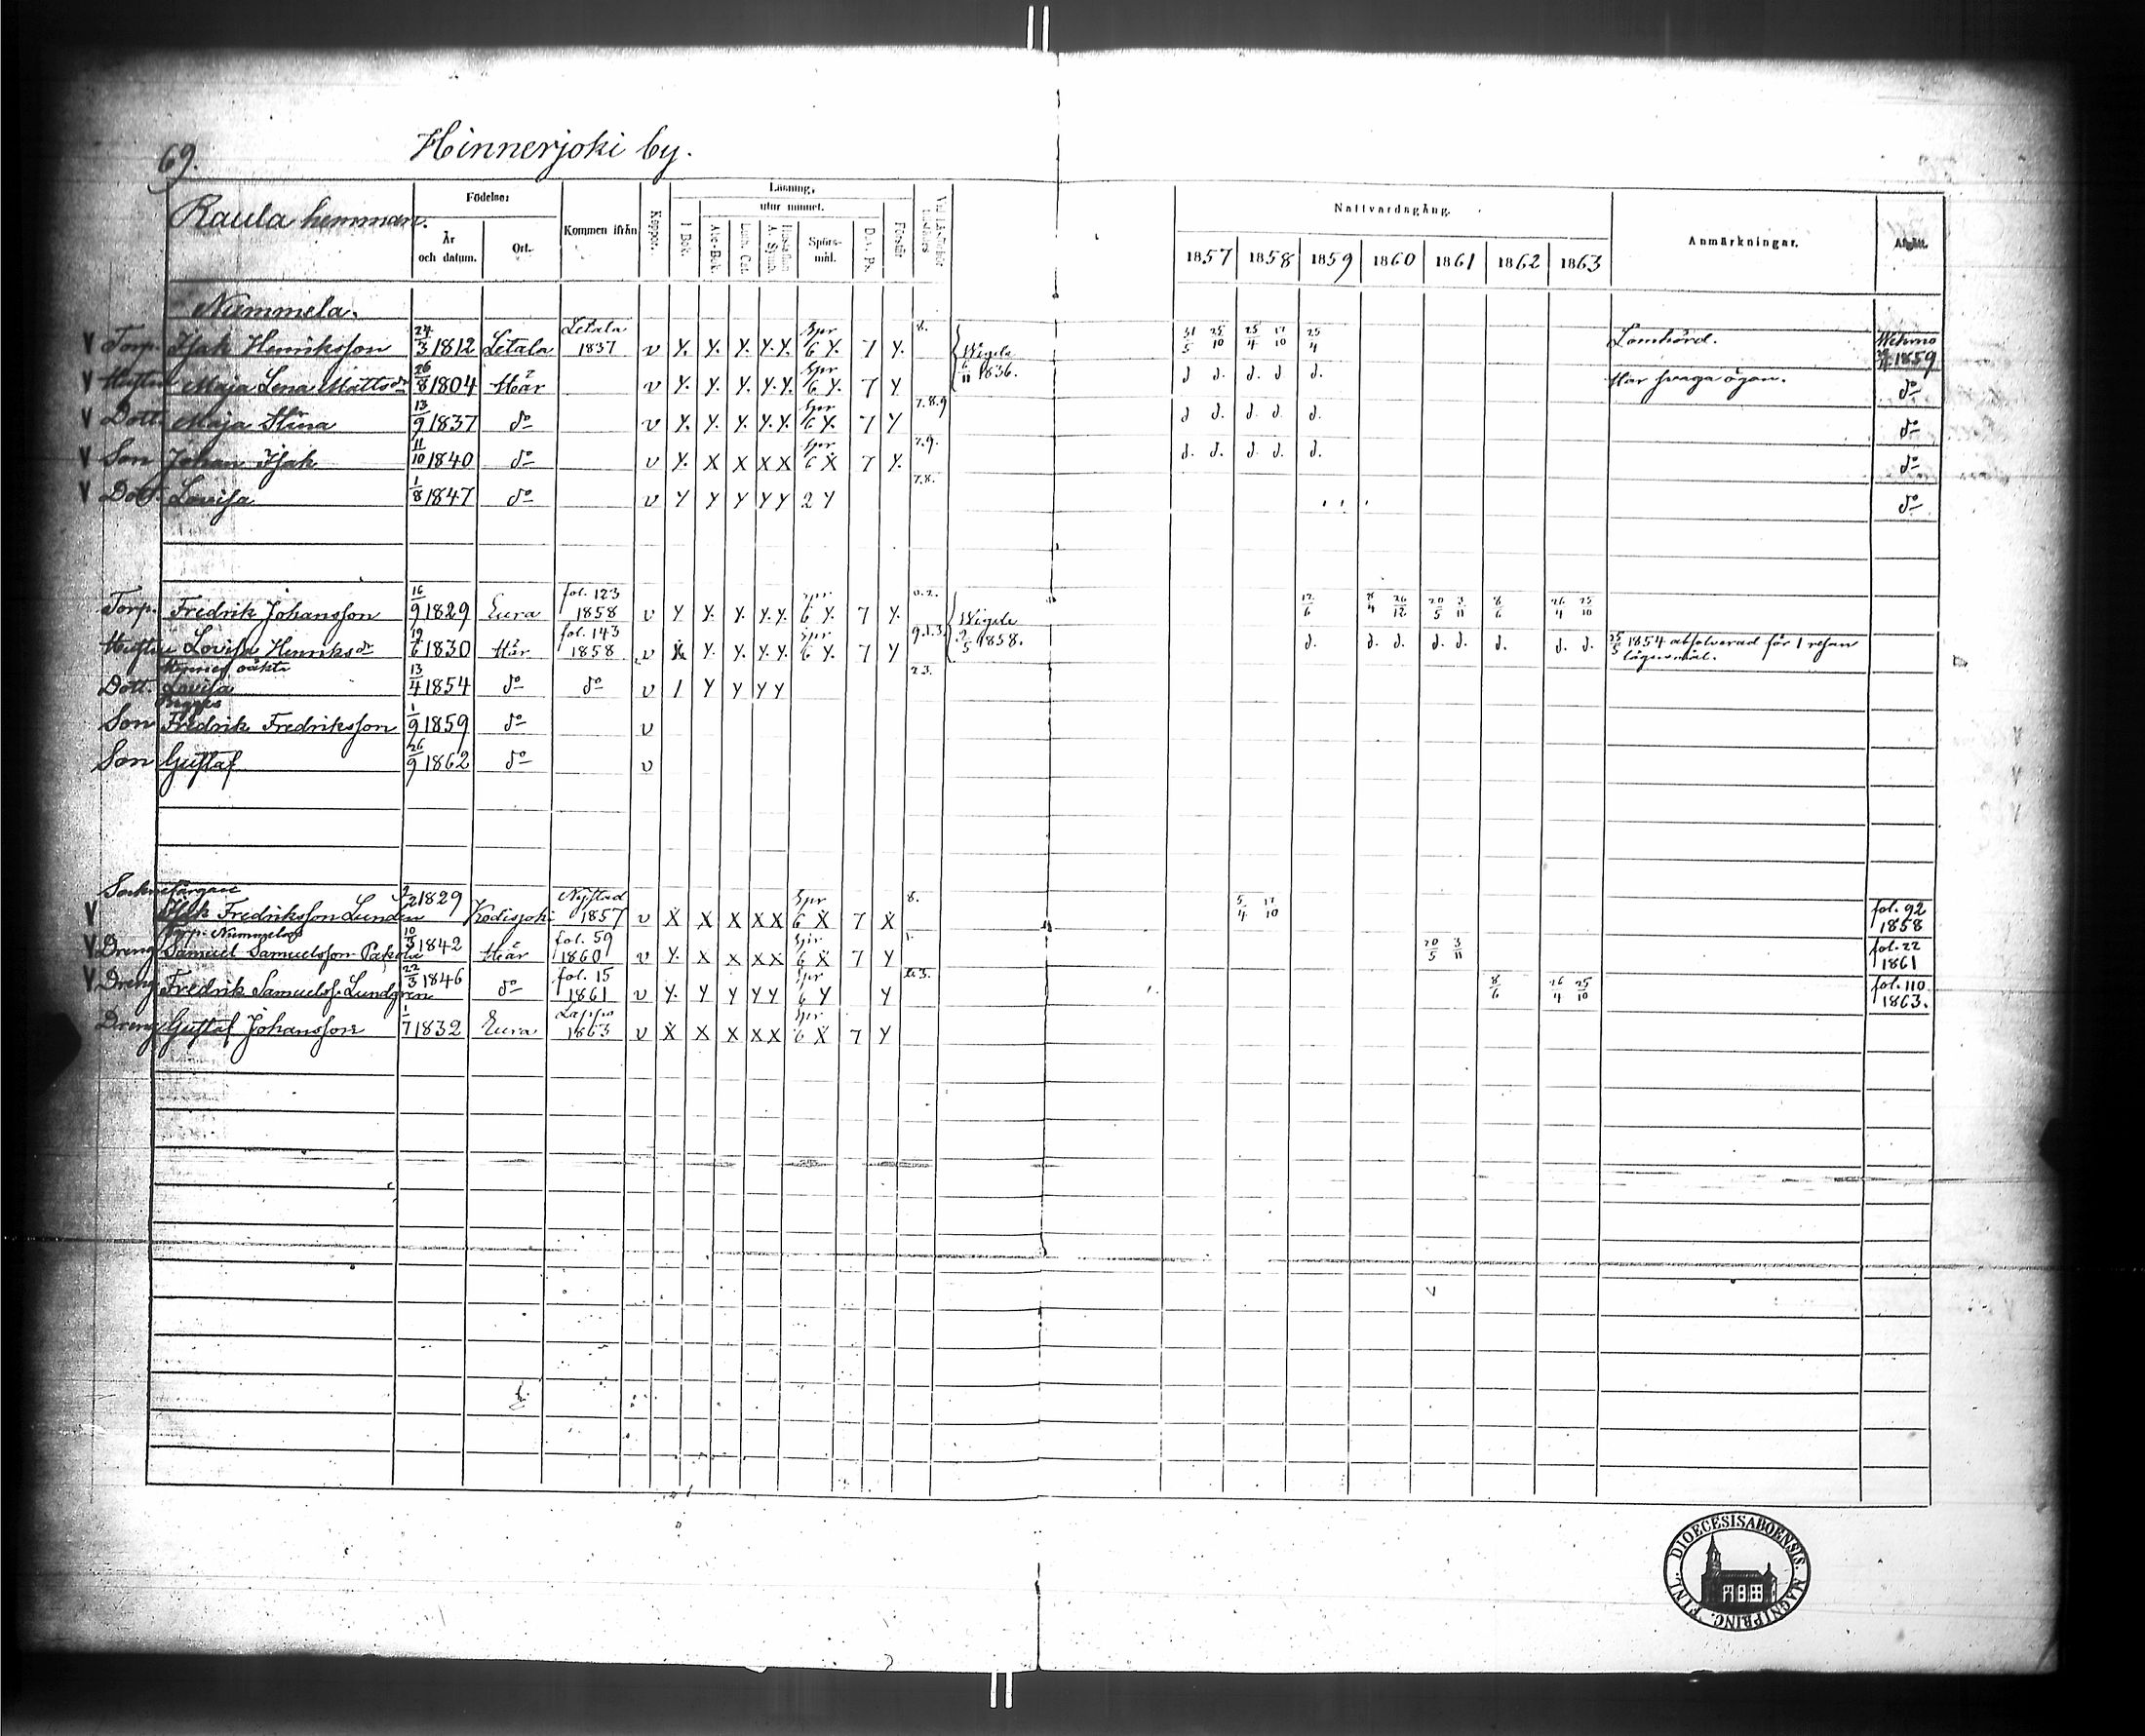 69.
Hinnerjoki by.
Raula hemman.
Födelse:
År och datum.
Ort.
Kommen ifrån
Koppor.
Läsning,
utur minnet.
I Bok.
Abc-Bok.
Luth. Cat.
Hustaflan A. Symb.
Spörsmål.
Dav. Ps.
Förstår
Nattvardsgång.
1857 1858 1859 1860 1861 1862 1863
Anmärkningar.
Afgått.
Nummela.
V Torp. Isak Henriksson 24/3 1812 Letala Letala 1837 v Y. Y. Y. Y. Y. Spr 6 Y. 7 Y. 8. Wigde 6/11 1836. 31/5 25/10 25/4 17/10 25/4 Lomhörd. Wehmo 1859
V Hustru Maja Lena Mattsdr 26/8 1804 Här v Y. Y. Y. Y. Y. Spr 6 Y. 7 Y d d. d. d d. Har svaga ögon. do
V Dott. Maja Stina 13/9 1837 do v Y. Y. Y. Y. Y. Spr 6 Y. 7 Y 7.8.9 d d. d. d. d. do
V Son Johan Isak 11/10 1840 do v Y. X X X X Spr 6 X 7 Y. 7.9. d. d. d. d. d. do
V Dott. Lovisa 1/8 1847 do v Y Y Y Y Y 2 Y 7.8. do
Torp. Fredrik Johansson 16/9 1829 Eura fol. 123 1858 v Y Y. Y. Y. Y. Spr 6 Y. 7 Y. 0.2. Wigde 2/5 1858. 12/6 8/4 26/12 20/5 3/11 8/6 26/4 25/10
Hustru Lovisa Henriksdr 19/6 1830 Här fol. 143 1858 v Y. Y. Y. Y. Spr 6 Y. 7 Y 9.1.3. d. d. d. d. d. d. d. d. 25/5 1854 absolverad för 1 resan lägersmål.
Dott. Hennes oäkta Lovisa 13/4 1854 do do v 1 Y Y Y Y 2 3.
Son Fredrik Fredriksson 1/9 1859 do v
Son Gustaf 26/9 1862 do v
Socknefärgare
V Isak Fredriksson Lunden 2/2 1829 Kodisjoki Nystad 1857 v X X X X X Spr 6 X 7 X 8. 5/4 17/10 fol. 92 1858
Torp. Nummelas
V Dreng Samuel Samuelsson 10/3 1842 Här fol. 59 1860 v Y. X X X X Spr 6 X 7 Y 1. 20/5 3/11 fol. 22 1861
V Dreng Fredrik Samuelss. Lundgren 22/3 1846 do fol. 15 1861 v Y. Y Y Y Y Spr 6 Y Y 8/6 26/4 25/10 fol. 110 1863.
Dreng Gustaf Johansson 1/7 1832 Eura Lappo 1863 v X X X X X Spr 6 X 7 Y
DIOECESIS ABOENSIS. MAGNI PRINC. FINL.